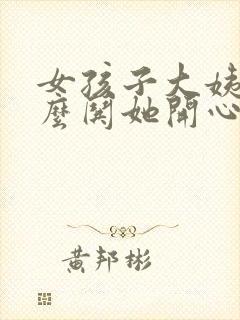 女孩子大姨
麼鬨她開心
黃邦彬